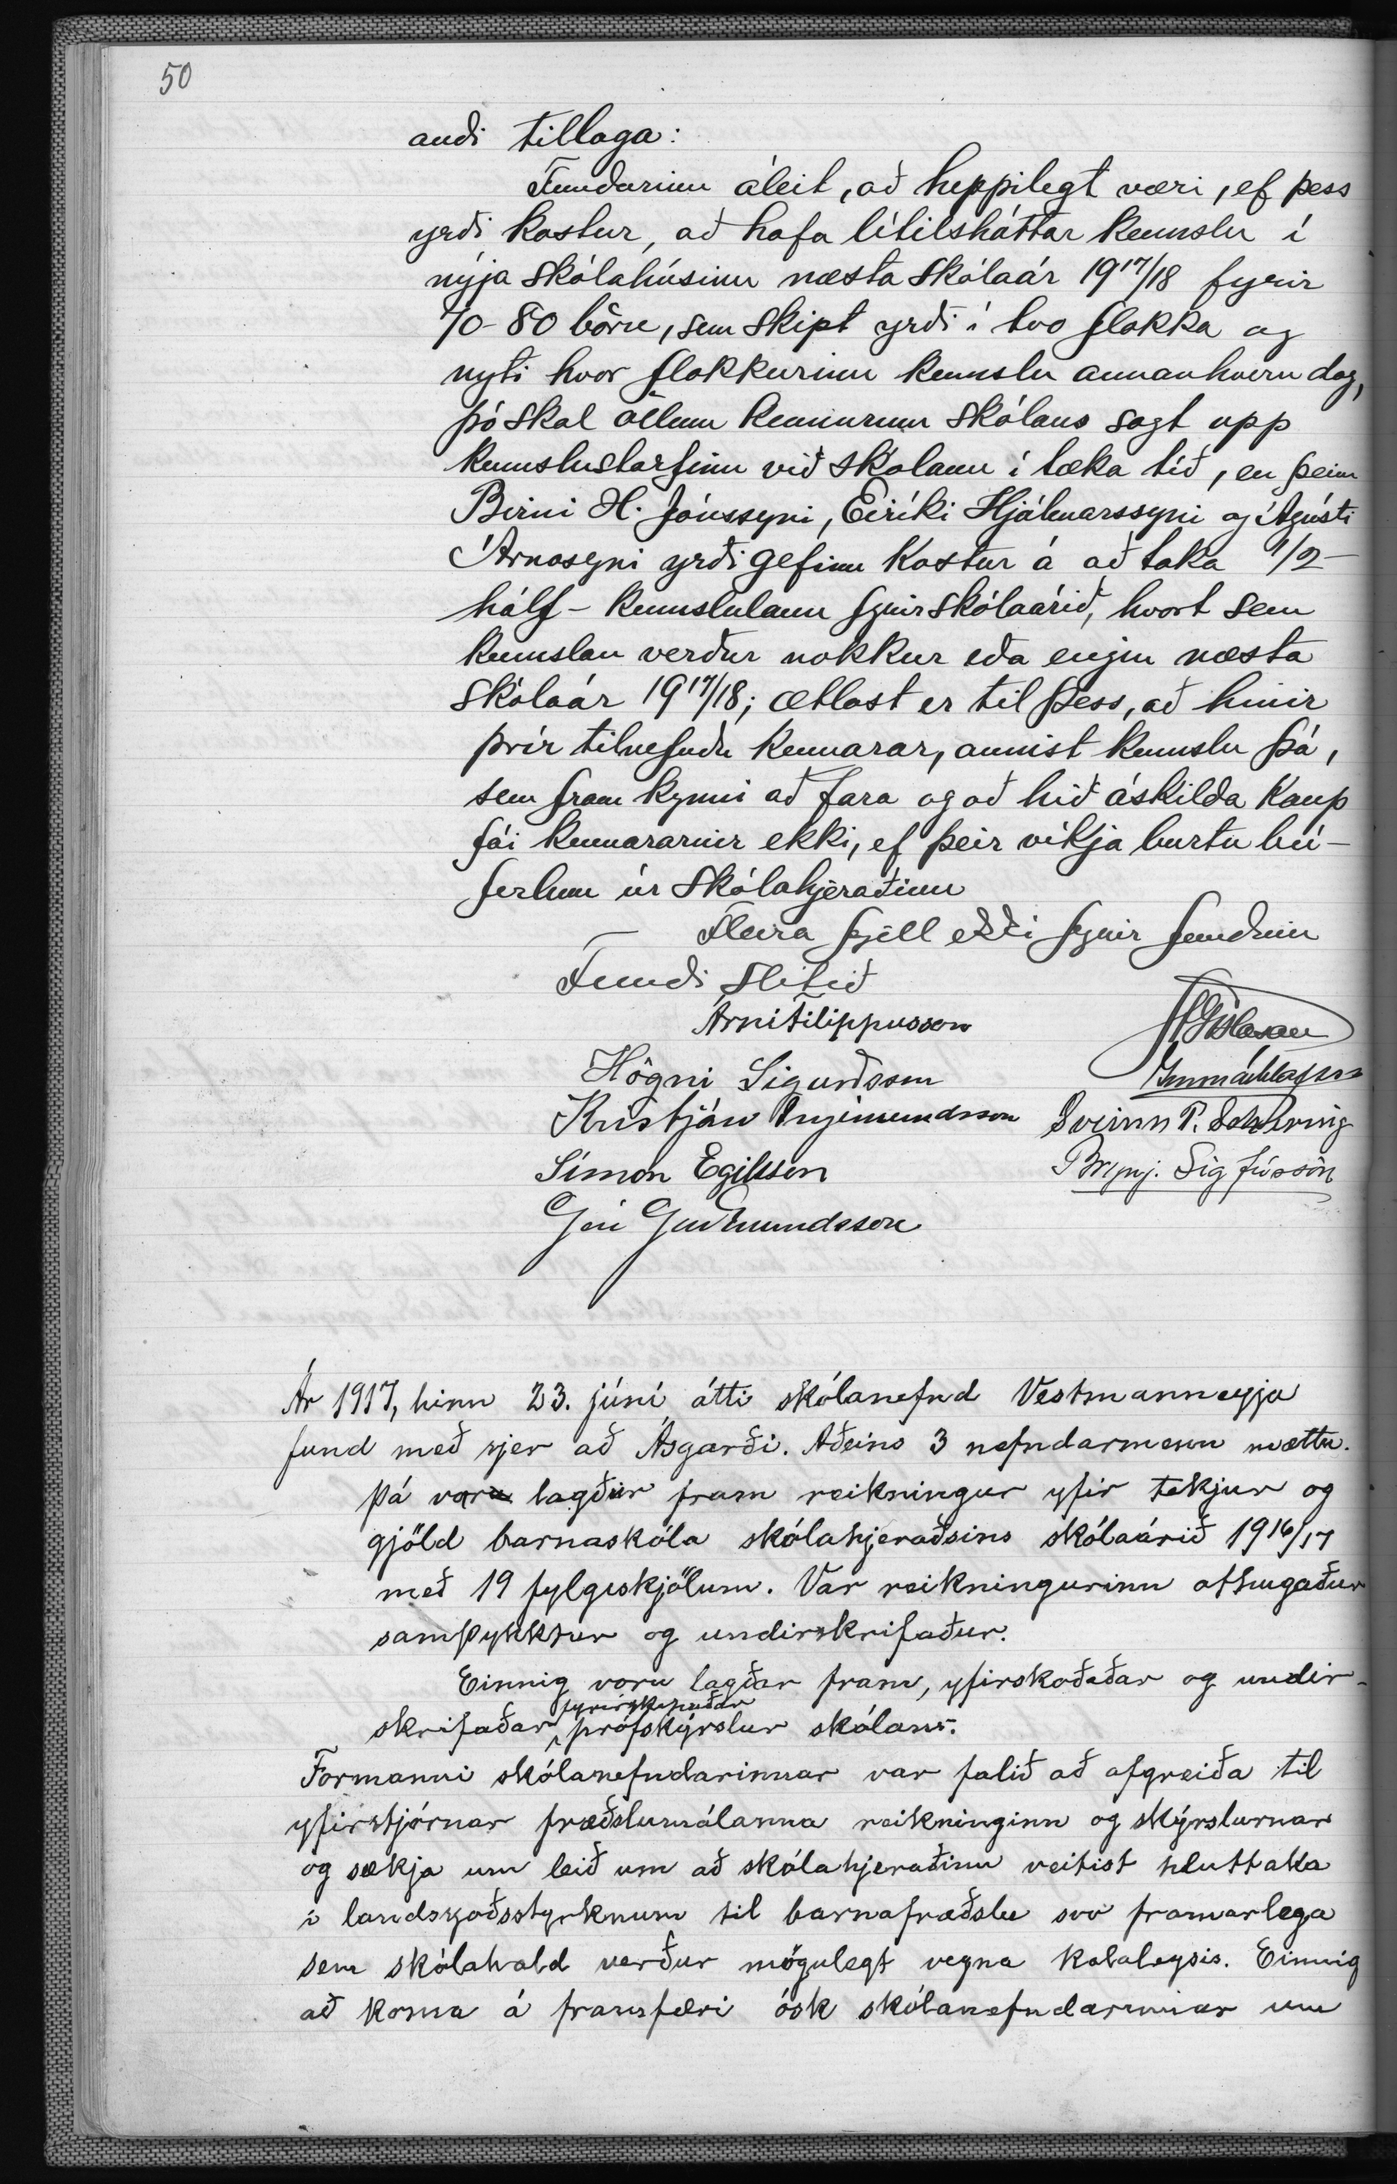 50
andi tillaga:
Fundurinn áleit, að heppilegt væri, ef þess
yrði kostur, að hafa lítilsháttar kennslu í
nýja skólahúsinu næsta skólaár 1917/18 fyrir
70-80 börn, sem skipt yrði í tvo flokka og
nyti hvor flokkurinn kennslu annanhvern dag,
þó skal öllum kennurum skólans sagt upp
kennslustarfinu við skólann í tæka tíð, en þeim
Birni H. Jónssyni, Eiríki Hjálmarssyni og Ágústi
Árnasyni yrði gefinn kostur á að taka 1/2-
hálf- kennslulaun fyrir skólaárið, hvort sem
kennslan verður nokkur eða engin næsta
skólaár 1917/18; ætlast er til þess, að hinir
þrír tilnefndu kennarar, annist kennslu þá,
sem fram kynni að fara og að hið áskilda kaup
fái kennararnir ekki, ef þeir víkja burtu bú-
ferlum úr skólahjeraðinu
Fleira fjell ekki fyrir fundinn
Fundi slitið
Árni Filippusson
Högni Sigurðsson
Kristján Ingimundsson
Símon Egilsson
Geir Guðmundsson
JGíslason
Sveinn P. Scheving
Brynj. Sigfússon
Ár 1917, hinn 23. júní átti skólanefnd Vestmanneyja
fund með sjer að Ásgarði. Aðeins 3 nefndarmenn mættu.
Þá var lagður fram reikningur yfir tekjur og
gjöld barnaskóla skólahjeraðsins skólaárið 1916/17
með 19 fylgiskjölum. Var reikningurinn athugaður
samþykktur og undirskrifaður.
Einnig voru lagðar fram, yfirskoðaðar og undir-
skrifaðar fyrirskipaðar prófskýrslur skólans.
Formanni skólanefndarinnar var falið að afgreiða til
yfirstjórnar fræðslumálanna reikninginn og skýrslurnar
og sækja um leið um að skólahjeraðinu veitist hluttaka
í landssjóðsstyrknum til barnafræðslu svo framarlega
sem skólahald verður mögulegt vegna kolaleysis. Einnig
að koma á framfæri ósk skólanefndarinnar um